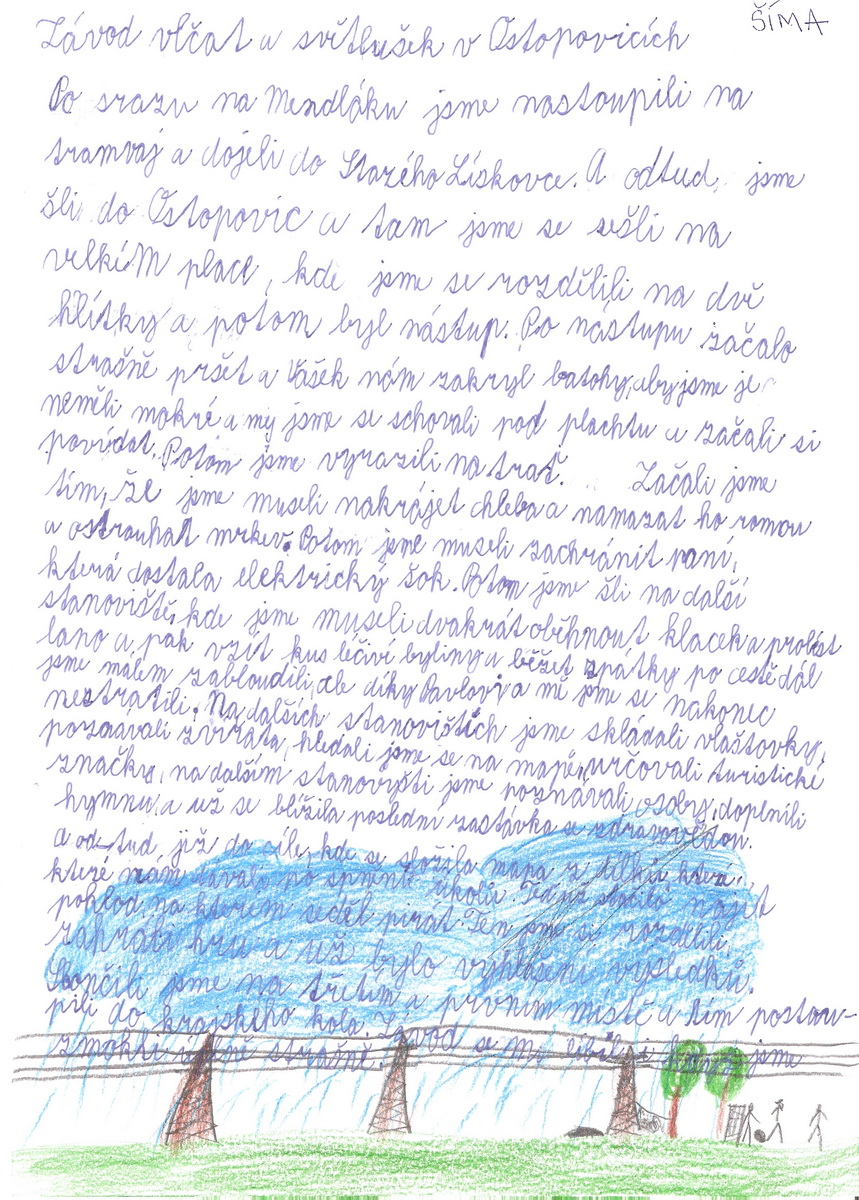 ŠÍMA
Závod vlčat a světlušek v Ostopovicích
Po srazu na Mendláku jsme nastoupili na
tramvaj a dojeli do Starého Lískovce. A odtud, jsme
šli do Ostopovic a tam jsme se sešli na
velkéM place, kde jsme se rozdělili na dvě
hlítky a potom byl nástup. Po nástupu začalo
strašně pršet a Vašek nám zakryl batohy, aby jsme je
neměli mokré a my jsme se schovali pod plachtu a začali si
povídat. Potom jsme vyrazili na trať. Začali jsme
tím, že jsme museli nakrájet chleba a namazat ho romou
a ostrouhat mrkev. Potom jsme museli zachránit paní,
která dostala elektrický šok. Potom jsme šli na další
stanoviště, kde jsme museli dvakrát oběhnout klacek a prolést
lano a pak vzít kus léčivé byliny a běžet zpátky po cestě dál
jsme málem zabloudili, ale díky Pavlovi a mě jsme se nakonec
neztratili. Na dalších stanovištích jsme skládali vlaštovky,
poznávali zvířata, hledali jsme se na mapě, určovali turistické
značky, na dalším stanovyšti jsme poznávali osoby, doplnili
hymnu, a už se blížila poslední zastávka se zdravovědou.
a od tud již do cíle, kde se složila mapa z dílků které
které nám davali po splnění úkolů. Teď už stačilo najít
poklad na kterém seděl pirát. Ten jsme si rozdělili,
zahráli hru a už bylo vyhlášení výsledků.
Skončili jsme na třetím a prvním místě a tím postou-
pili do krajského kola. Závod se mi líbil, i když jsme
zmokli úplně strašně.